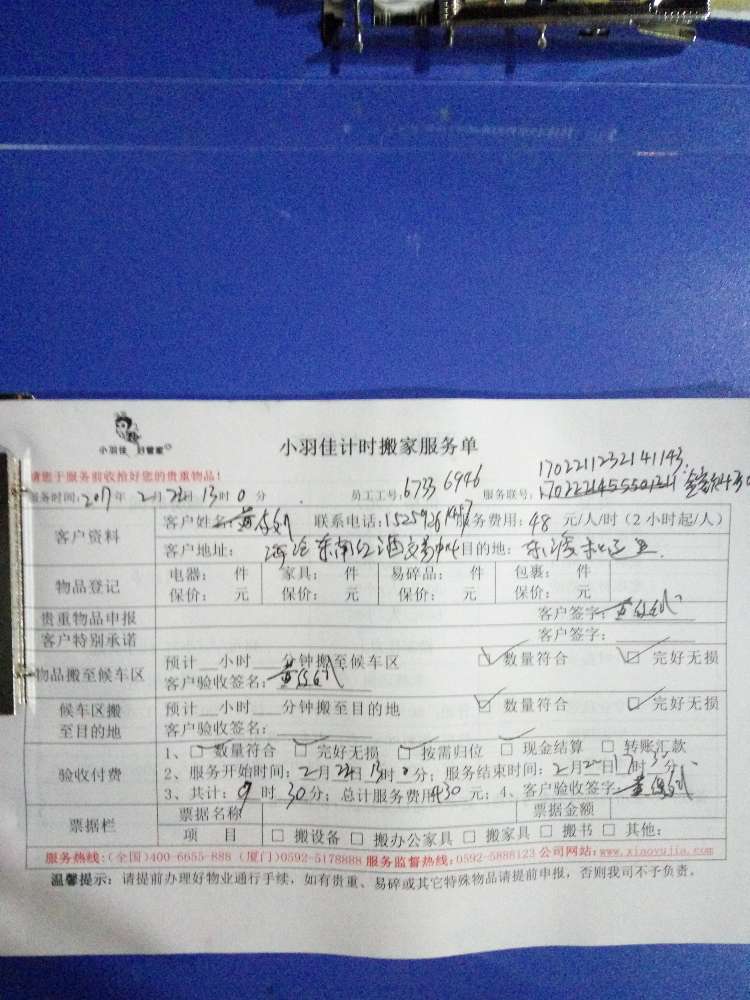 小羽佳 好管家
小羽佳计时搬家服务单
请您于服务前收拾好您的贵重物品！
17022112321 41143
服务时间:2017年 2月22日13时0分 员工工号:6733 6946 服务联号:
客户资料 客户姓名: 联系电话: 服务费用: 48 元/人/时(2小时起/人)
客户地址: 海沧东南红酒交易中心 目的地:
物品登记 电器: 件 家具: 件 易碎品: 件 包裹: 件
保价: 元 保价: 元 保价: 元 保价: 元
贵重物品申报 客户签字:
客户特别承诺 客户签字:
物品搬至候车区 预计__小时___分钟搬至候车区 ☑ 数量符合 ☑ 完好无损
客户验收签名:
候车区搬至目的地 预计__小时___分钟搬至目的地 ☑ 数量符合 ☑ 完好无损
客户验收签名:
验收付费 1、☑ 数量符合 ☑ 完好无损 ☑ 按需归位 ☑ 现金结算 □ 转账汇款
2、服务开始时间: 2月22日13时0分; 服务结束时间: 2月22日17时35分
3、共计: 9时30分; 总计服务费用430元; 4、客户验收签字:
票据栏 票据名称 票据金额
项 目 □ 搬设备 □ 搬办公家具 □ 搬家具 □ 搬书 □ 其他:
服务热线:(全国)400-6655-888 (厦门)0592-5178888 服务监督热线:0592-5888123 公司网站:www.xiaoyujia.com
温馨提示: 请提前办理好物业通行手续，如有贵重、易碎或其它特殊物品请提前申报，否则我司不予负责。